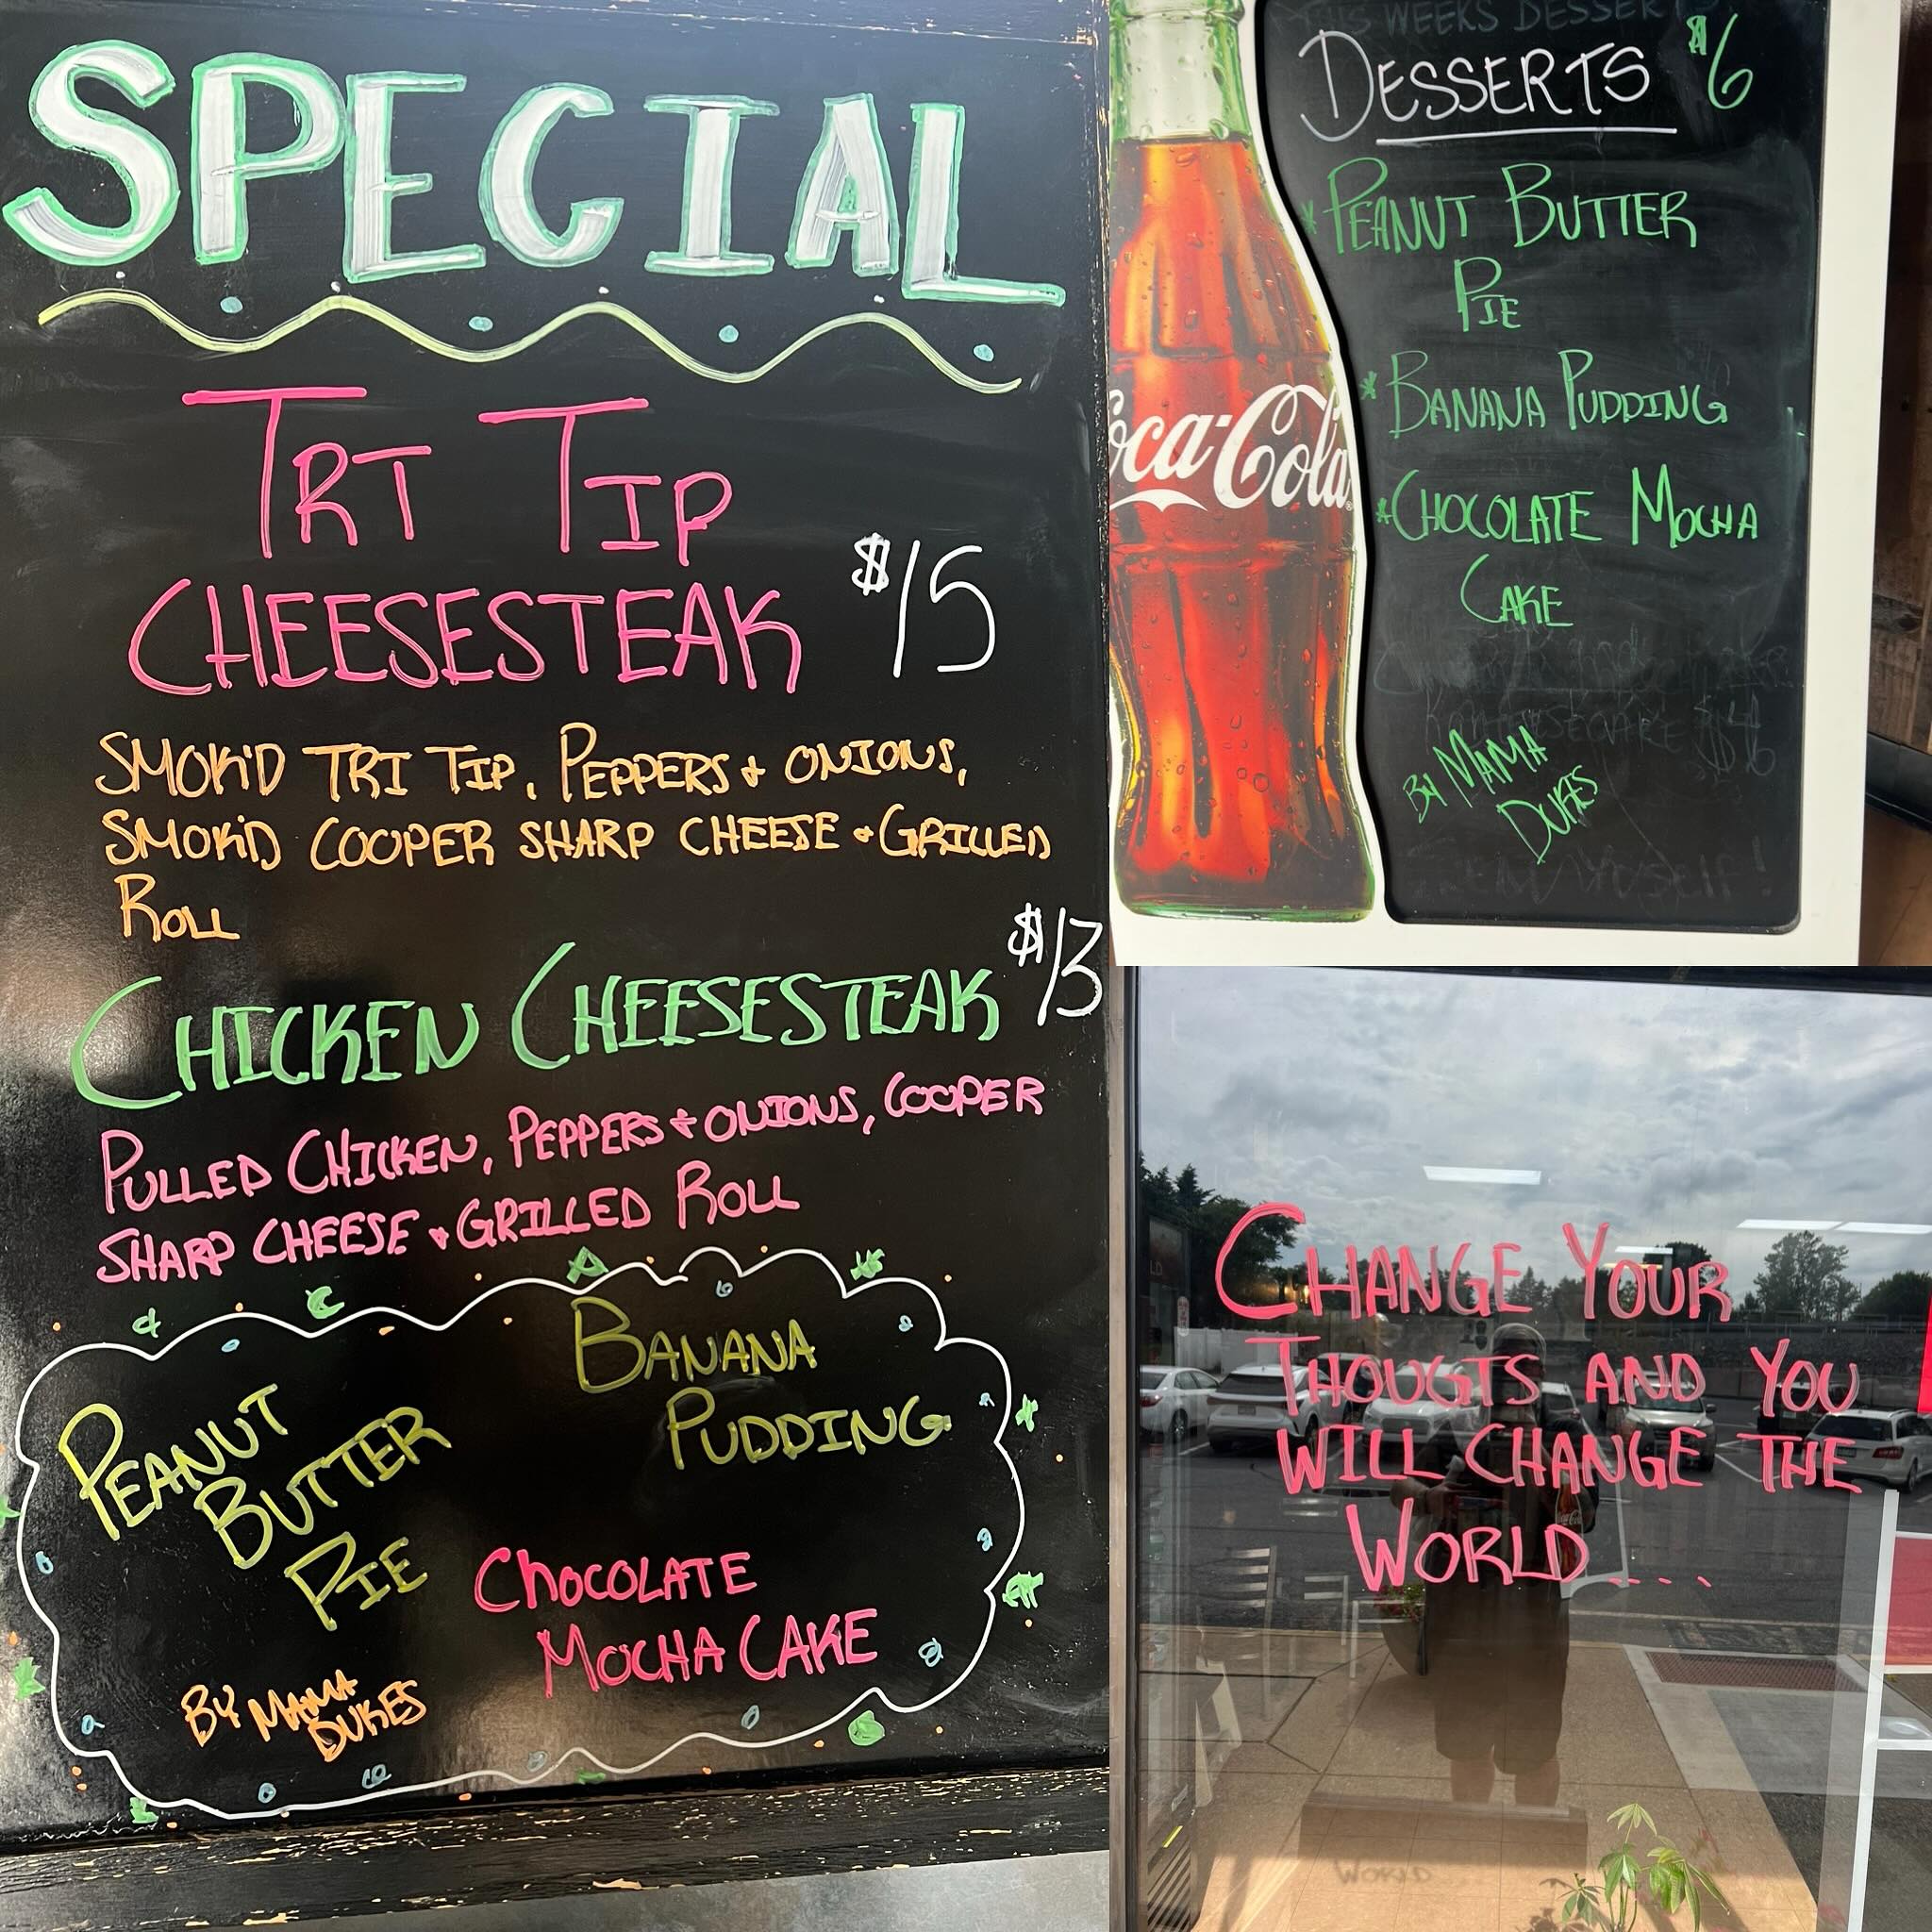 SPECIAL
TRI TIP
CHEESESTEAK $15
SMOKiD TRI TIP, PEPPERS + ONIONS,
SMOKiD COOPER SHARP CHEESE + GRILLED
ROLL
CHICKEN CHEESESTEAK $13
PULLED CHICKEN, PEPPERS + ONIONS, COOPER
SHARP CHEESE + GRILLED ROLL
BANANA
PUDDING
PEANUT
BUTTER
PIE
ChOCOLATE
MOCHA CAKE
BY MAMA
DUKES
THIS WEEKS DESSERTS
DESSERTS $6
*PEANUT BUTTER
PIE
*BANANA PUDDING
*CHOCOLATE MOCHA
CAKE
BY MAMA
DUKES
Coca-Cola
CHANGE YOUR
THOUGTS AND YOU
WILL CHANGE THE
WORLD....